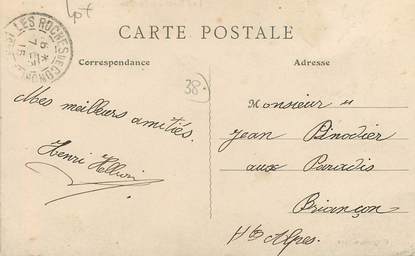 Lot
LES ROCHES DE CONDRIEU
6 *
7
15
CARTE POSTALE
Correspondance
Adresse
38
Mes meilleurs amitiés.
Henri
Monsieur "
Jean Pinodier
aux Paradis
Briançon
Htes Alpes.